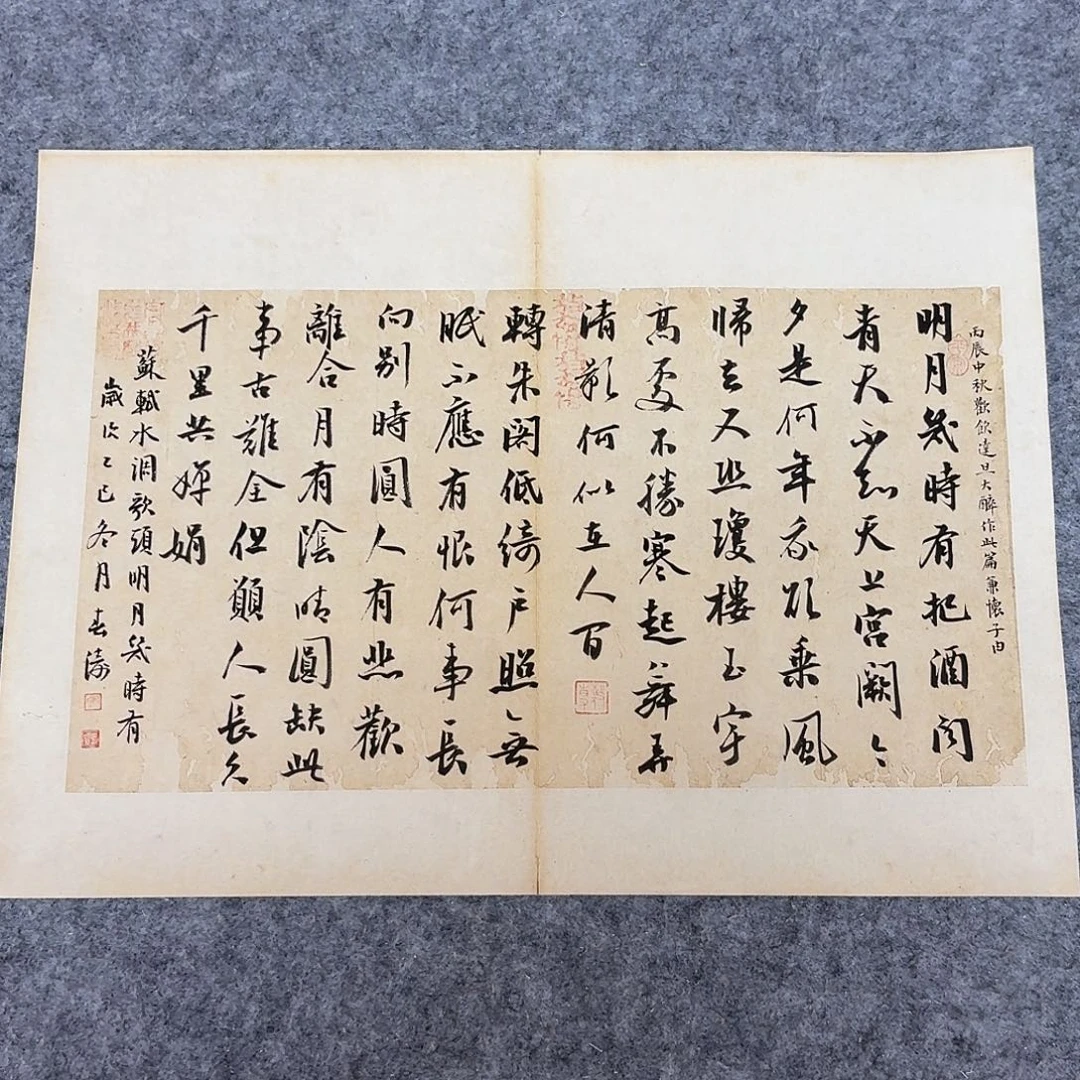 丙辰中秋歡飲達旦大醉作此篇兼懷子由
明月幾時有把酒問
青天不知天上宮闕今
夕是何年我欲乘風
歸去又恐瓊樓玉宇
高處不勝寒起舞弄
清影何似在人間
轉朱閣低綺戶照無
眠不應有恨何事長
向別時圓人有悲歡
離合月有陰晴圓缺此
事古難全但願人長久
千里共嬋娟
蘇軾水調歌頭明月幾時有
歲次乙巳冬月春濤